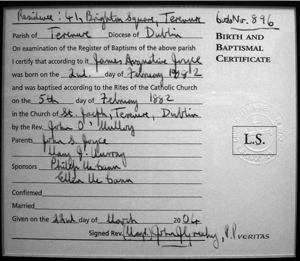 Residence: 41, Brighton Square, Terenure
Parish of Terenure Diocese of Dublin
On examination of the Register of Baptisms of the above parish
I certify that according to it James Augustine Joyce
was born on the 2nd day of February 1882
and was baptised according to the Rites of the Catholic Church
on the 5th day of February 1882
in the Church of St. Joseph, Terenure, Dublin
by the Rev. John O'Mulloy
Parents John S. Joyce
Mary J. Murray
Sponsors Philip McCann
Ellen McCann
Confirmed
Married
Given on the 22nd day of March 2004
Signed Rev. P.P.
No. 896
BIRTH AND
BAPTISMAL
CERTIFICATE
L.S.
VERITAS